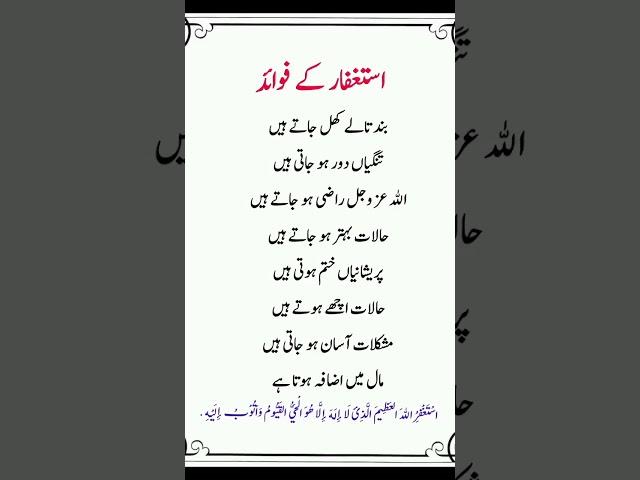 استغفار کے فوائد
بند تالے کھل جاتے ہیں
تنگیاں دور ہو جاتی ہیں
اللہ عز وجل راضی ہو جاتے ہیں
حالات بہتر ہو جاتے ہیں
پریشانیاں ختم ہوتی ہیں
حالات اچھے ہوتے ہیں
مشکلات آسان ہو جاتی ہیں
مال میں اضافہ ہوتا ہے
اَسْتَغْفِرُ اللهَ الْعَظِيْمَ الَّذِىْ لَا اِلٰهَ اِلَّا هُوَ الْحَيُّ الْقَيُّوْمُ وَاَتُوْبُ اِلَيْهِ.